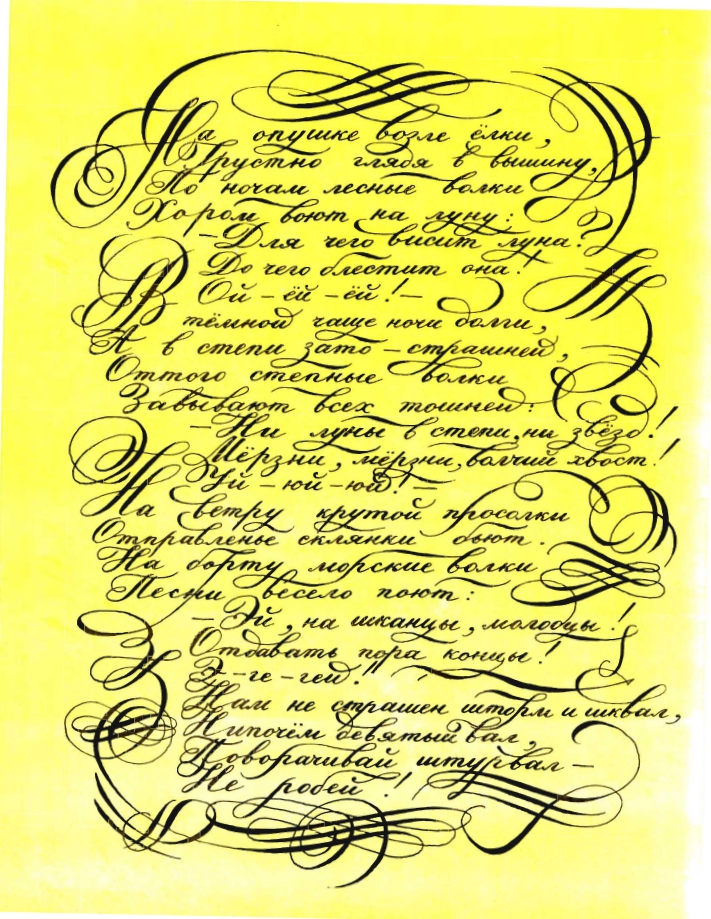 На опушке возле ёлки,
Грустно глядя в вышину,
По ночам лесные волки
Хором воют на луну:
– Для чего висит луна?
До чего блестит она!
Ой – ёй – ёй! –
В тёмной чаще ночи долги,
А в степи зато – страшней,
Оттого степные волки
Завывают всех тошней:
– Ни луны в степи, ни звёзд!
Мёрзни, мёрзни, волчий хвост!
Уй – юй – юй! –
На ветру крутой просолки
Отправленье склянки бьют.
На борту морские волки
Песни весело поют:
– Эй, на шканцы, молодцы!
Отдавать пора концы!
Э – ге – гей!
Нам не страшен шторм и шквал,
Нипочём девятый вал,
Поворачивай штурвал –
Не робей!